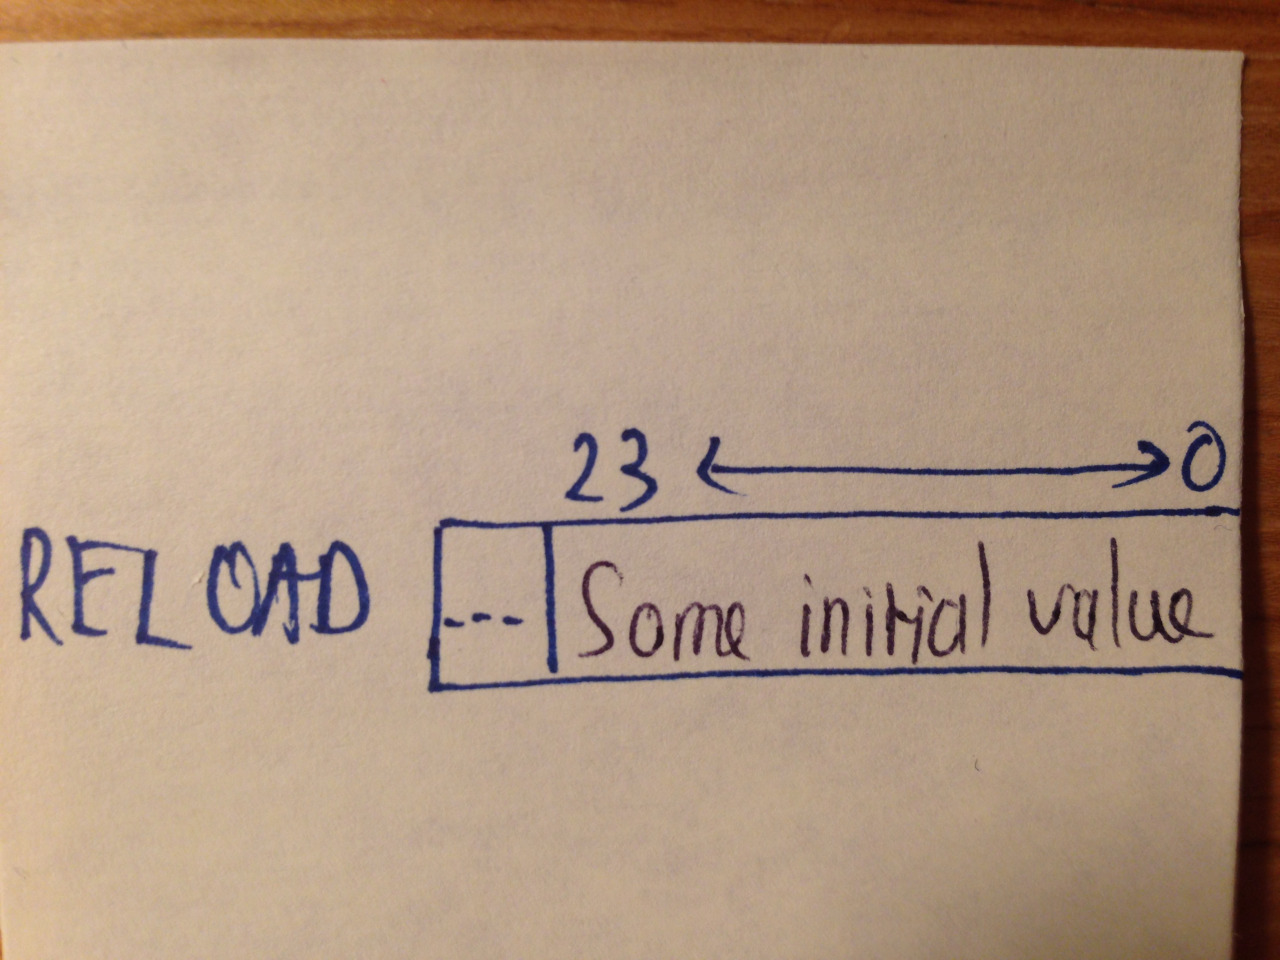 23 ↔ 0
RELOAD --- Some initial value